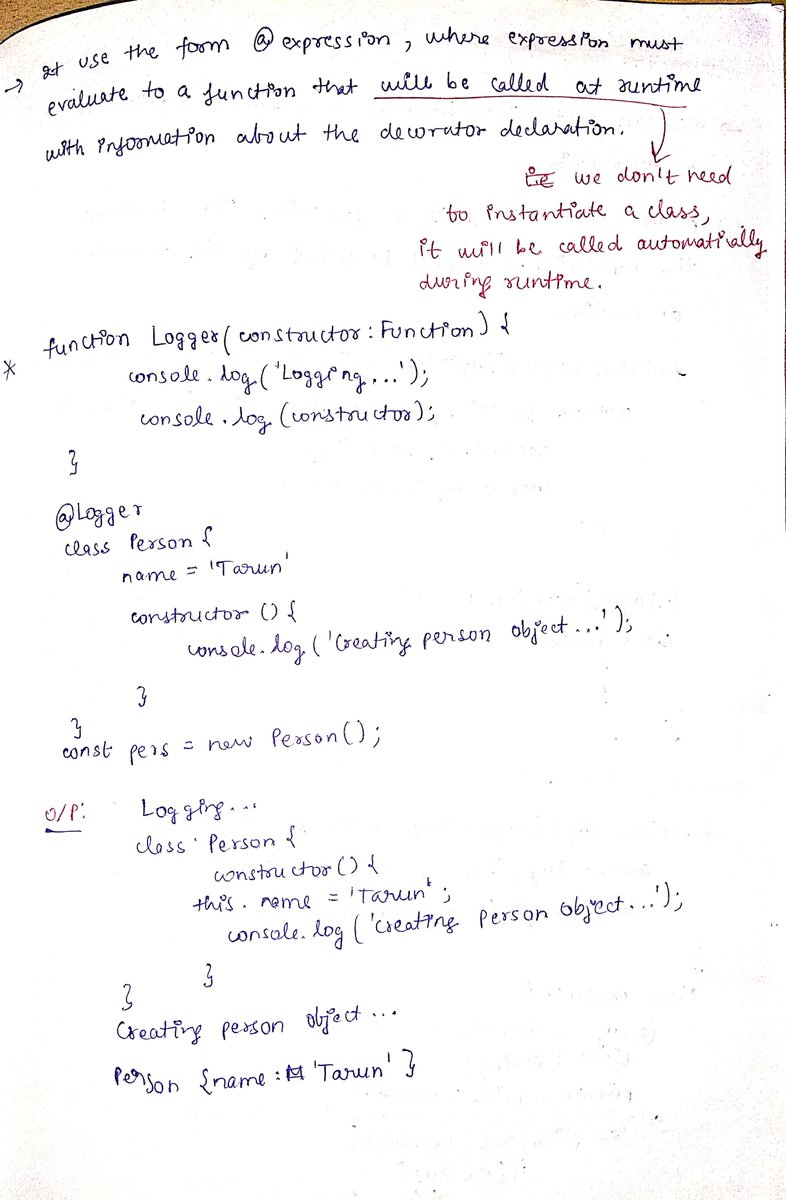 → It use the form @expression, where expression must
evaluate to a function that will be called at runtime
with information about the decorator declaration.
i.e we don't need
to instantiate a class,
it will be called automatically
during runtime.
* function Logger(constructor: Function) {
console.log('Logging...');
console.log(constructor);
}
@Logger
class Person {
name = 'Tarun'
constructor () {
console.log('Creating person object...');
}
}
const pers = new Person();
O/P: Logging...
class Person {
constructor() {
this.name = 'Tarun';
console.log('Creating person object...');
}
}
Creating person object...
Person {name: 'Tarun' }